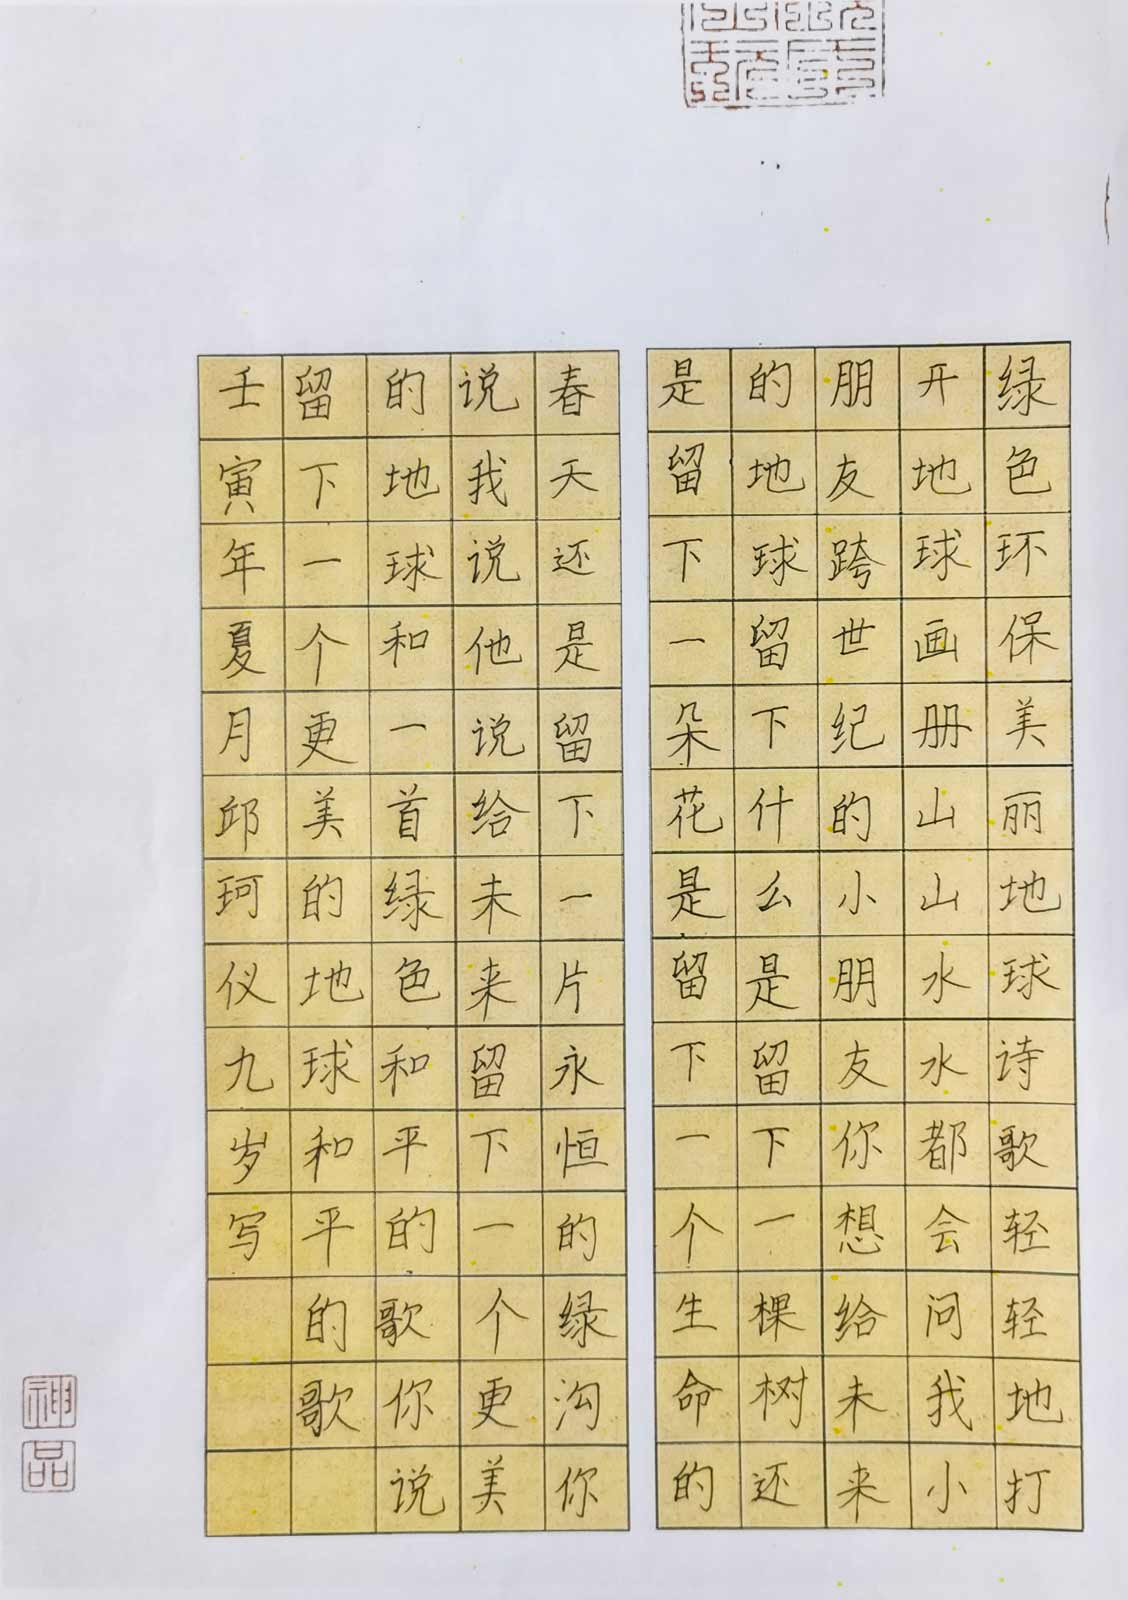 绿色环保美丽地球诗歌轻轻地打
开地球画册山山水水都会问我小
朋友跨世纪的小朋友你想给未来
的地球留下什么是留下一棵树还
是留下一朵花是留下一个生命的
春天还是留下一片永恒的绿沟你
说我说他说给未来留下一个更美
的地球和一首绿色和平的歌你说
留下一个更美的地球和平的歌
壬寅年夏月邱珂仪九岁写
神品